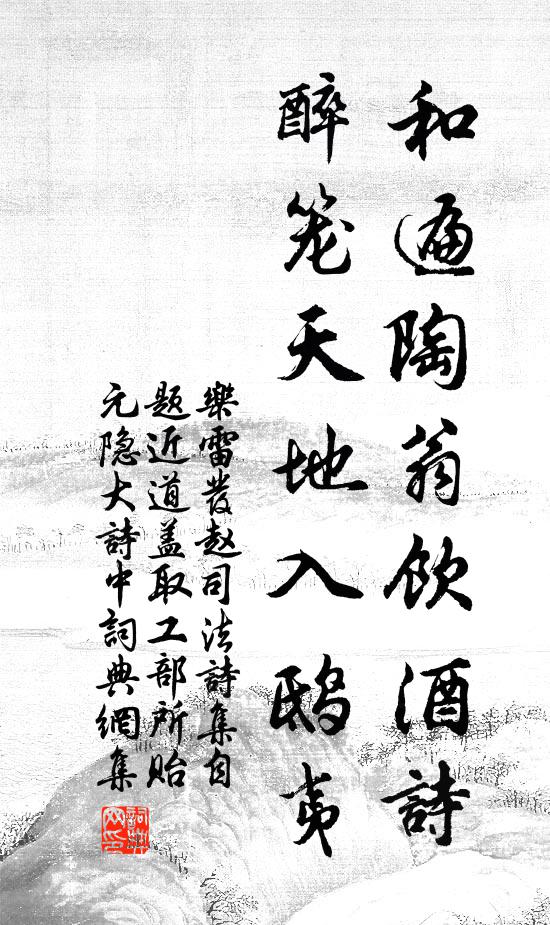 和遍陶翁飲酒詩
醉笼天地入鴟夷
樂雷發赵司法詩集自
题近道盖取工部所貽
元隐大詩中詞典網集